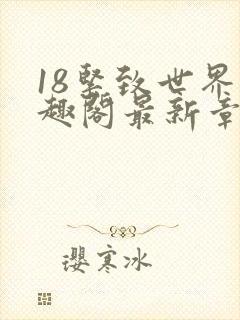 18紧致世界
趣阁最新章
璎寒冰